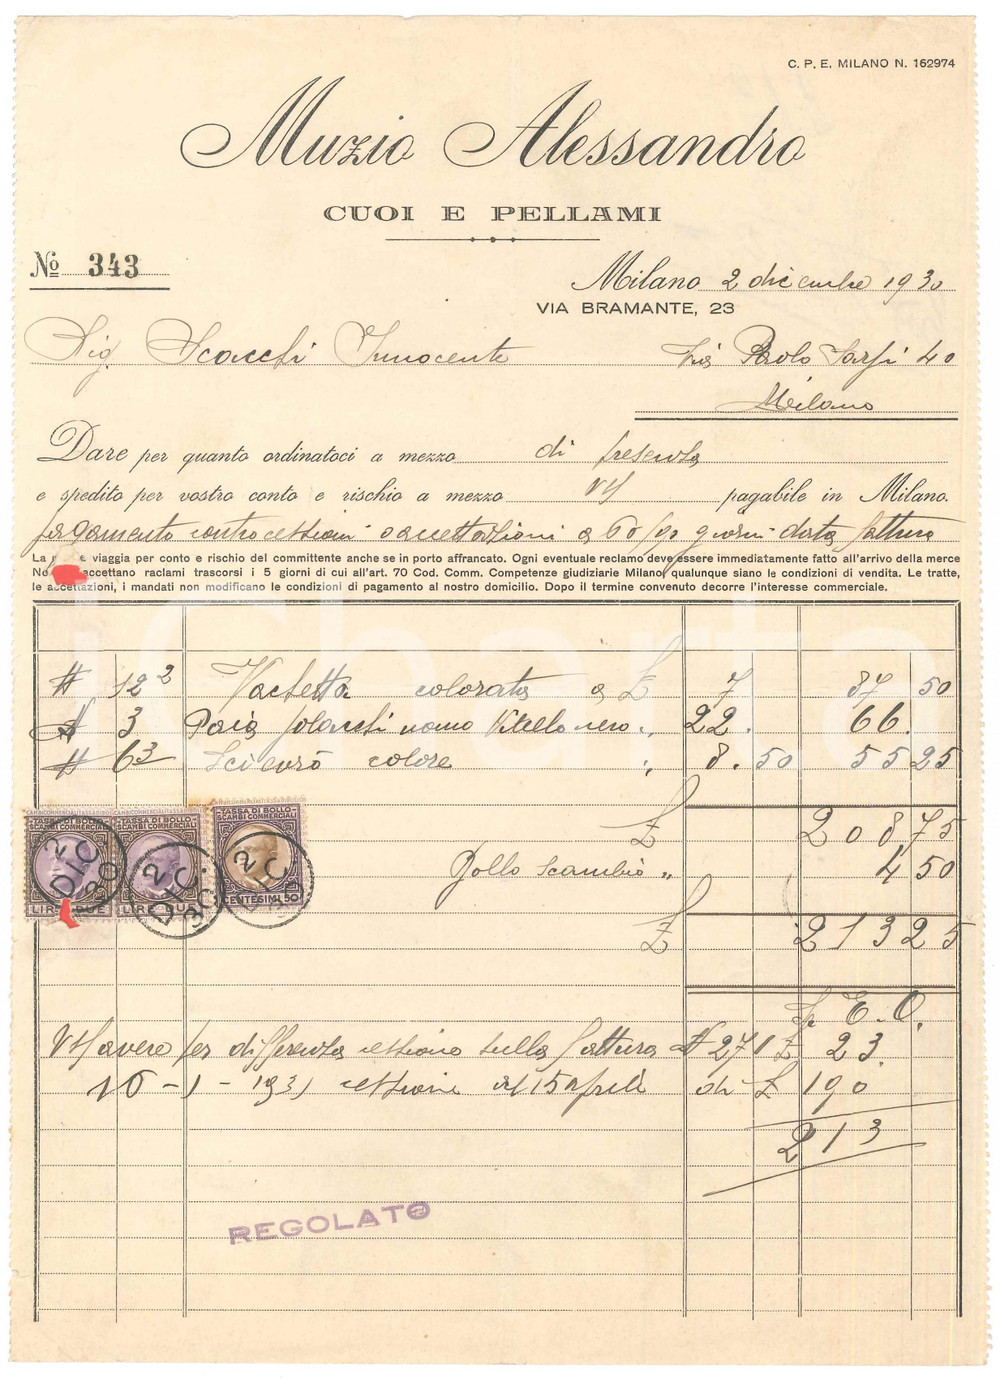 C. P. E. MILANO N. 162974
Muzio Alessandro
CUOI E PELLAMI
No 343
Milano 2 dicembre 1930
VIA BRAMANTE, 23
Sig. Scacchi Innocente Via Paolo Sarpi 40
Milano
Dare per quanto ordinatoci a mezzo di presenza
e spedito per vostro conto e rischio a mezzo pagabile in Milano.
pagamento contro cessioni o accettazioni a 60/90 giorni data fattura
La viaggia per conto e rischio del committente anche se in porto affrancato. Ogni eventuale reclamo deve essere immediatamente fatto all'arrivo della merce
No accettano raclami trascorsi i 5 giorni di cui all'art. 70 Cod. Comm. Competenze giudiziarie Milano, qualunque siano le condizioni di vendita. Le tratte,
le accettazioni, i mandati non modificano le condizioni di pagamento al nostro domicilio. Dopo il termine convenuto decorre l'interesse commerciale.
# 12 2 Vachetta colorata a £ 7 87 50
# 3 Paia uomo Vitello nero " 22. 66.
# 6 3 colore " 8.50 55 25
£ 208 75
Bollo Scambio " 4 50
£ 213 25
TASSA DI BOLLO SCAMBI COMMERCIALI LIRE DUE
TASSA DI BOLLO SCAMBI COMMERCIALI LIRE DUE
TASSA DI BOLLO SCAMBI COMMERCIALI CENTESIMI 50
2 DIC 30
2 DIC. 30
2 DIC
E. O.
avere per differenza cessione sulla fattura # 271 £ 23.
10 - 1 - 1931 cessione al 15 aprile di £ 190
213
REGOLATO